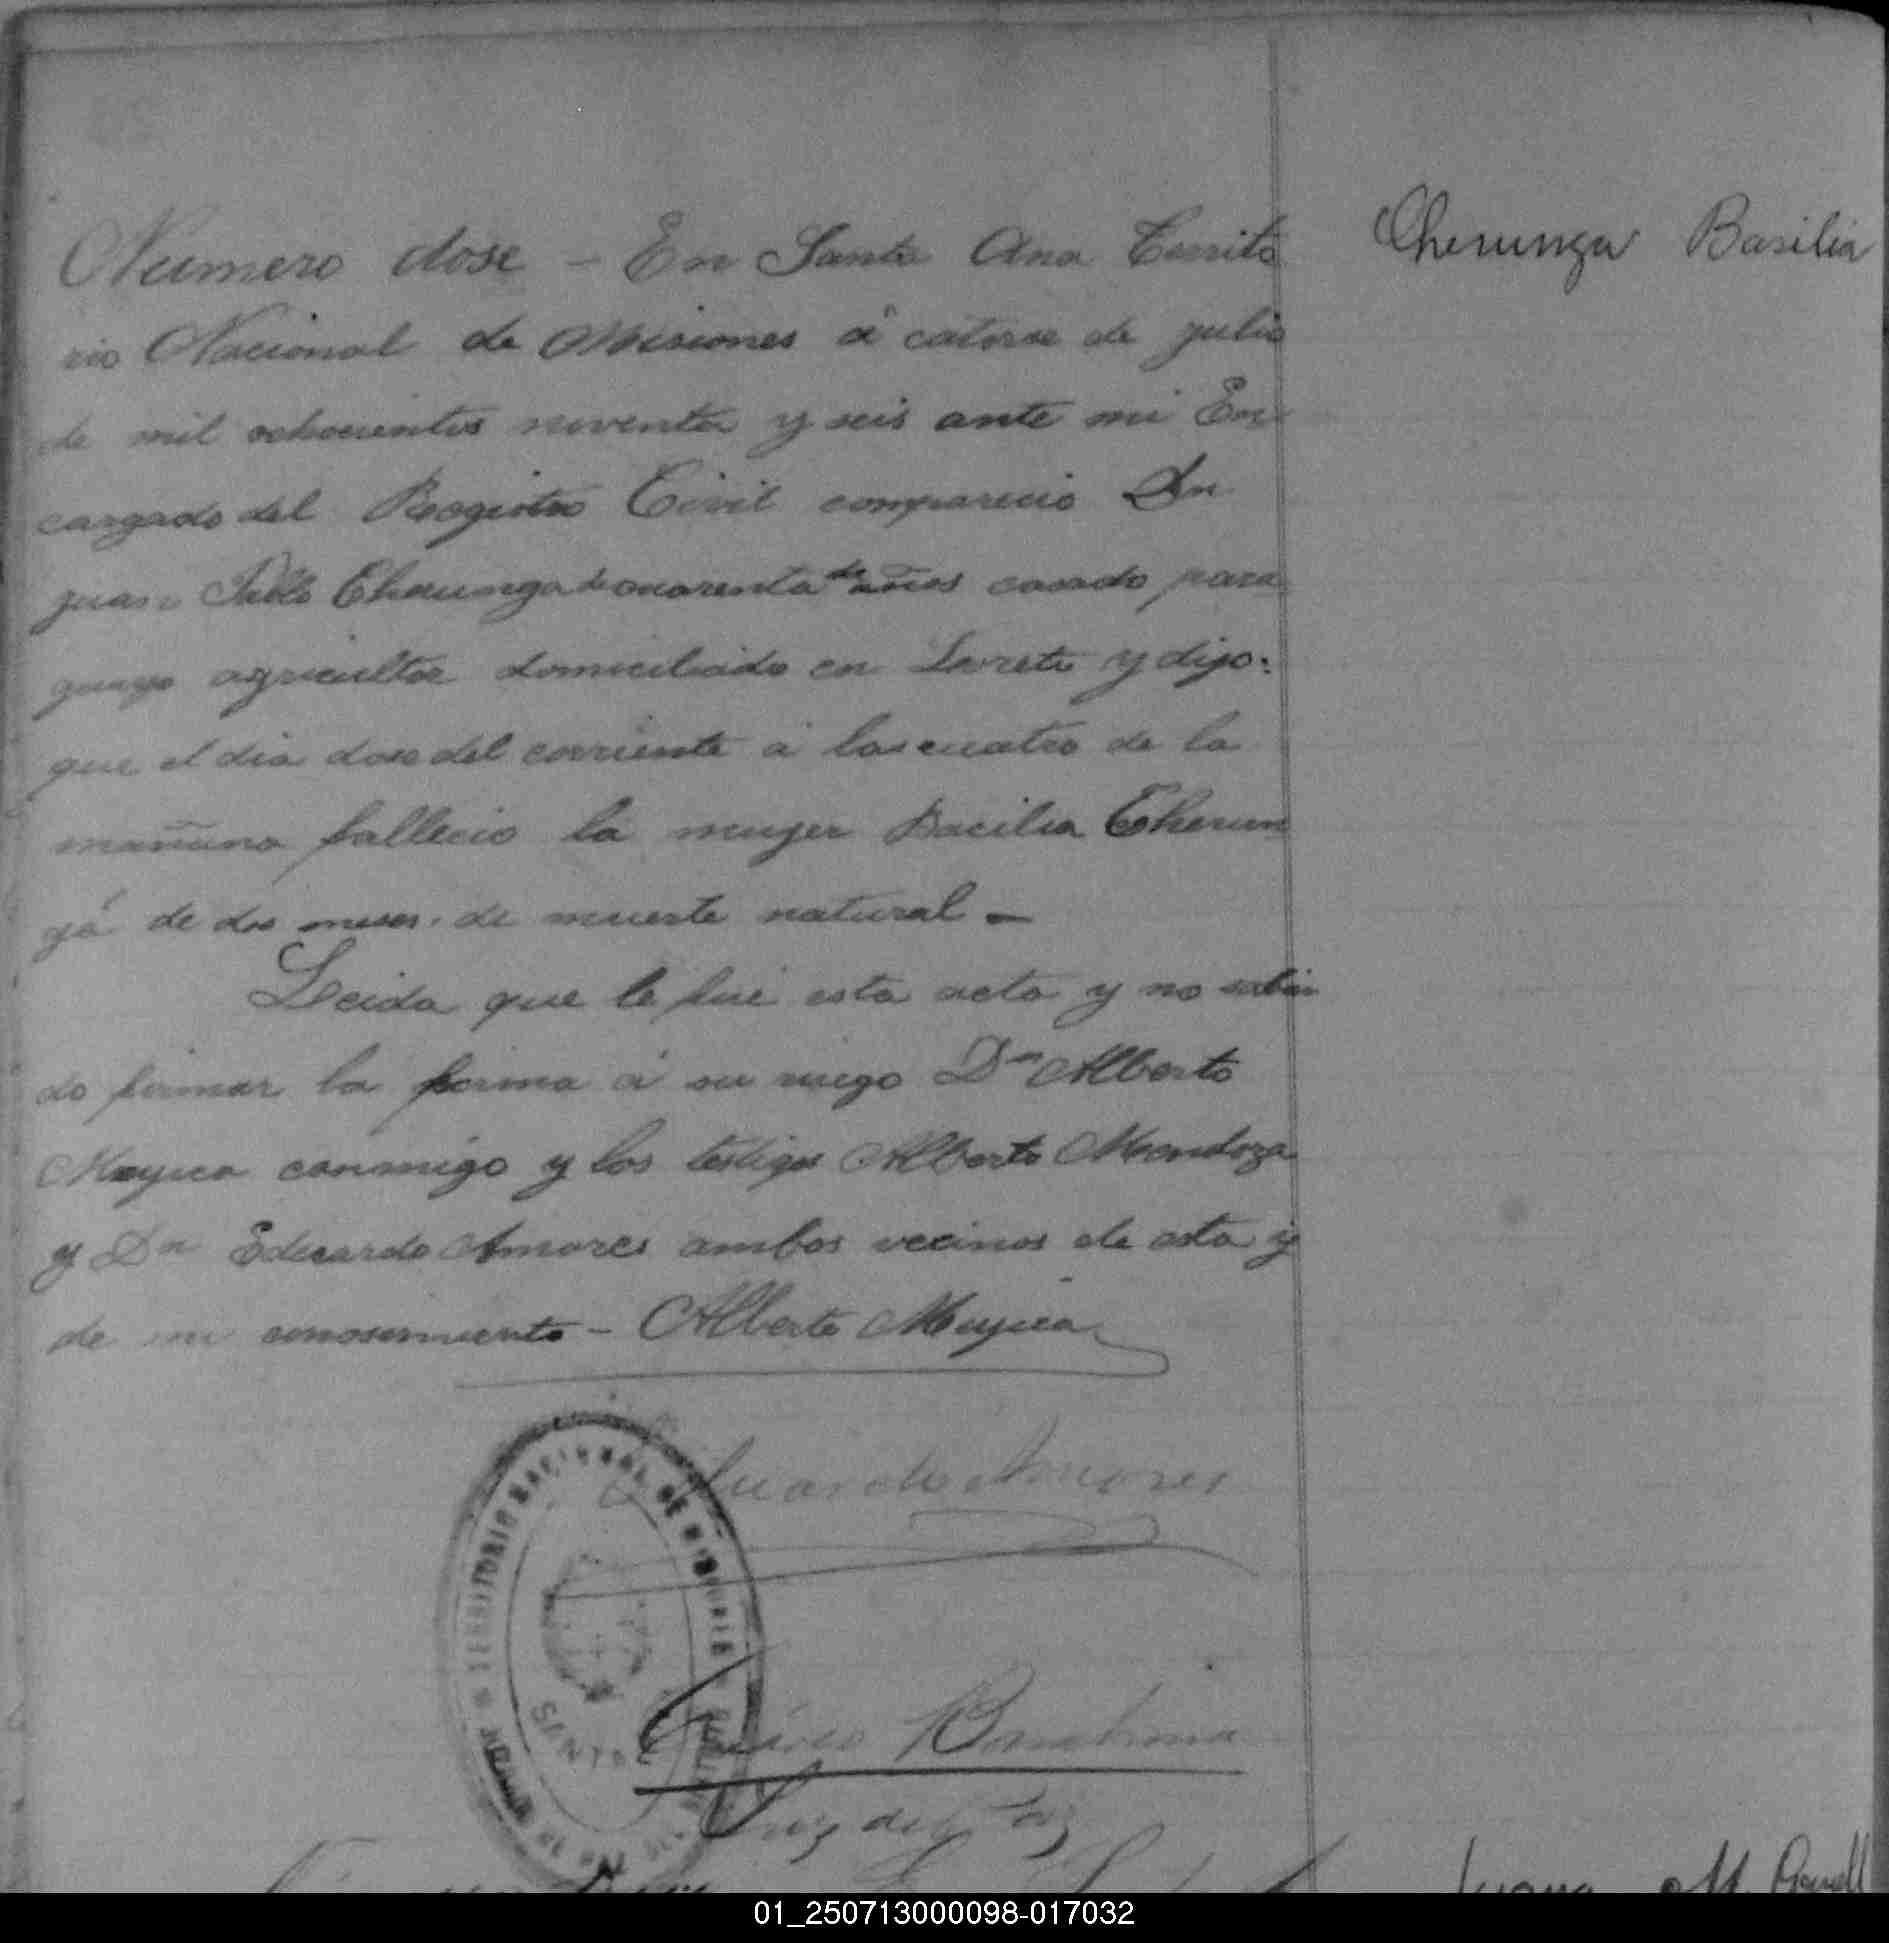 Cherunga Basilia
Numero dose - En Santa Ana Territo
rio Nacional de Misiones á catorse de julio
de mil ochocientos noventa y seis ante mi En
cargado del Registro Civil comparecio Dn
juan Pablo Cherunga de cuarenta de años casado para
guayo agricultor domiciliado en Loreto y dijo:
que el dia dose del corriente á las cuatro de la
mañana fallecio la mujer Bacilia Cherun
gá de dos meses. de muerte natural -
Leida que le fué esta acta y no sabien
do firmar la firma á su ruego Dn Alberto
Muyica conmigo y los testigos Alberto Mendoza
y Dn Eduardo Amores ambos vecinos de esta y
de mi conosimiento - Alberto Muyica
Eduardo Amores
TERRITORIO NACIONAL DE MISIONES
SANTA
Juez de Paz
Juana M.
01_250713000098-017032